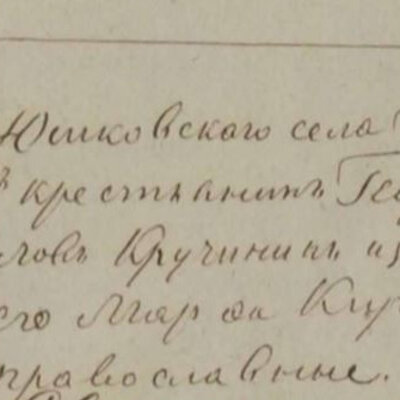 Юшковскаго села
крестьянинъ
ловъ Кручининъ
его Мар
православные.